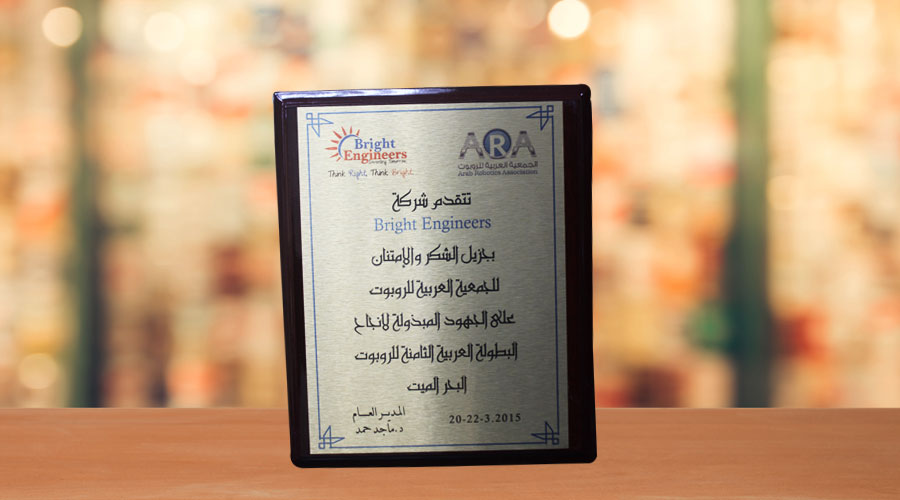 Bright
Engineers
Think Right, Think Bright
ARA
الجمعية العربية للروبوت
Arab Robotics Association
تتقدم شركة
Bright Engineers
بجزيل الشكر والإمتنان
للجمعية العربية للروبوت
على الجهود المبذولة لانجاح
البطولة العربية الثامنة للروبوت
البحر الميت
المدير العام
د.ماجد حمد
20-22-3.2015